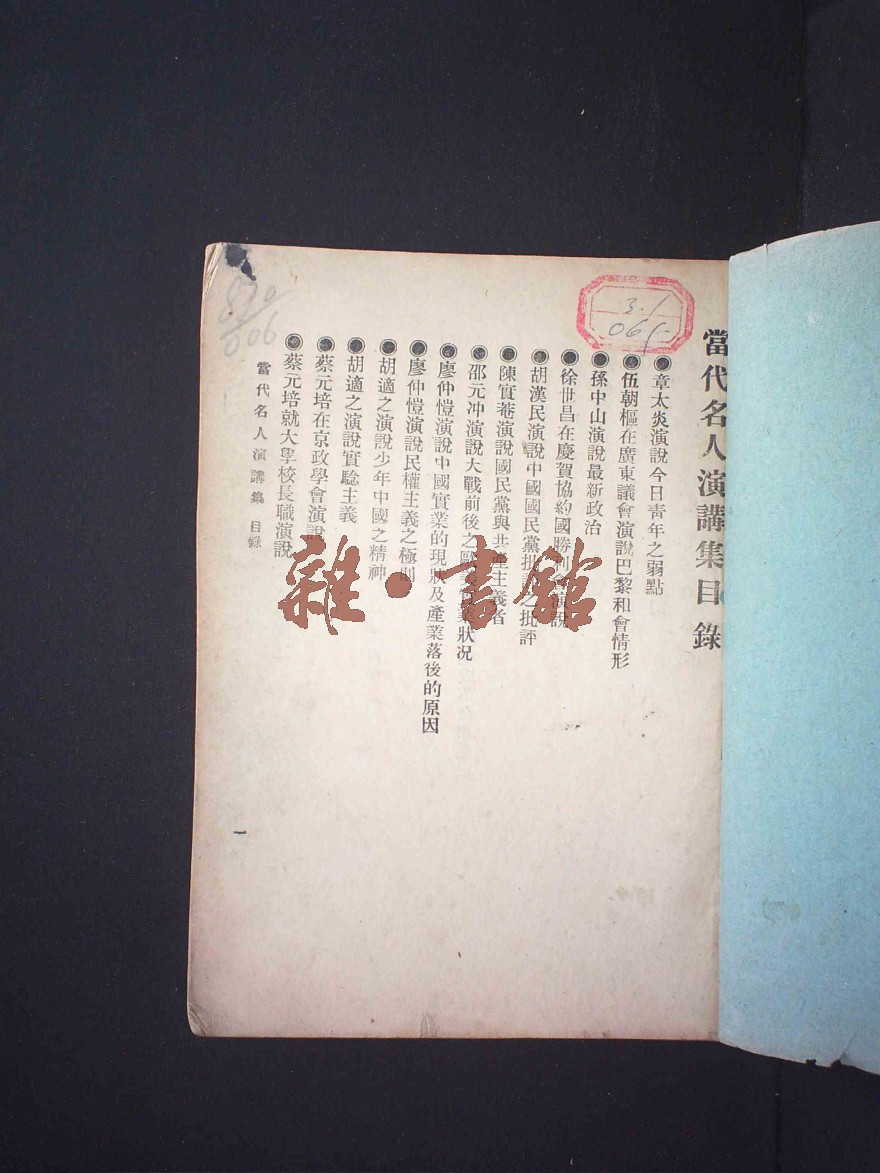 當代名人演講集目錄
●章太炎演說今日青年之弱點
●伍朝樞在廣東議會演說巴黎和會情形
●孫中山演說最新政治
●徐世昌在慶賀協約國勝利演說
●胡漢民演說中國國民黨批之批評
●陳實菴演說國民黨與共產主義者
●邵元冲演說大戰前後之歐業狀况
●廖仲愷演說中國實業的現狀及產業落後的原因
●廖仲愷演說民權主義之極則
●胡適之演說少年中國之精神
●胡適之演說實騐主義
●蔡元培在京政學會演說
●蔡元培就大學校長職演說
當代名人演講集 目錄
一
3.1
061
870
006
雜·書館